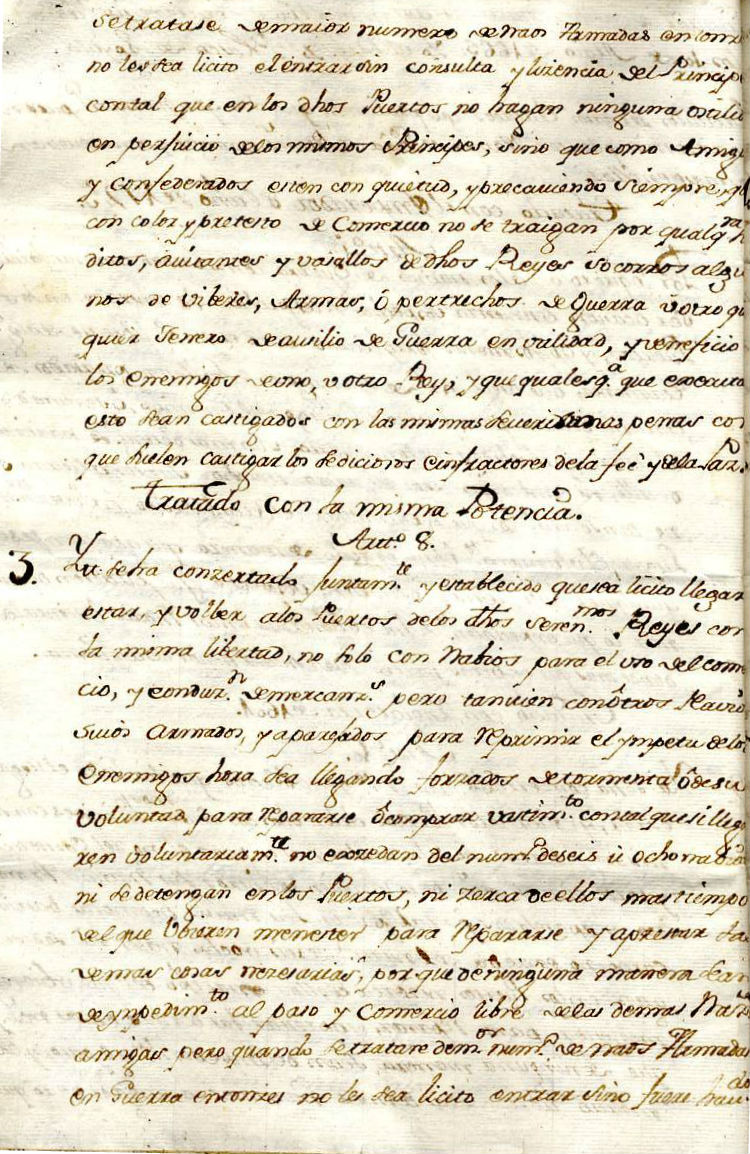 setratase demaior numero denaos Armadas entonz
no les sea licito el entrar sin consulta y lizencia del Principe
contal que en los dhos Puertos no hagan ninguna ostilid
en perjuicio delos mismos Principes, sino que como Amig
y confederados esten con quietud, yprecaviendo siempre, q
con color ypretesto de Comercio no se traigan por qualqra
ditos, avitantes y vasallos de dhos Reyes socorros algu
nos de viberes, Armas, ó pertrechos de Guerra ú otro qu
quier Jenero deausilio de Guerra en vtilidad, y veneficio
los enemigos deuno, v otro Rey, y que qualesqa que executa
esto sean castigados con las mismas severisimas penas con
que suelen castigar los sediciosos e infractores dela feé y dela Paz.
Tratado con la misma Potencia.
Artto 8.
3. Yu. seha conzertado, Juntamte y establecido quesea licito llegar
estar, y volber alos Puertos delos dhos serenmos Reyes con
la misma libertad, no solo con Nabios para el vso del come
cio, y conduzn demercanzs pero tanvien con ôtros Navios
suios armados, y aparejados para reprimir el ympetu delos
enemigos hora sea llegando forzados de tormenta ô desu
voluntad para repararse ô comprar vastimto contal que si llega
ren voluntariamte no exzedan del numo deseis ù ocho nav
ni sedetengan enlos Puertos, ni zerca deellos mastiempo
del que Vbieren menester para repararse y aprestar las
demas cosas nezesarias, por que deninguna manera sean
deynpedimto al paso y comercio libre delas demas Naz
amigas pero quando setratare demor numo denaos Armadas
en Guerra entonzes no les sea licito entrar sino fuere hav